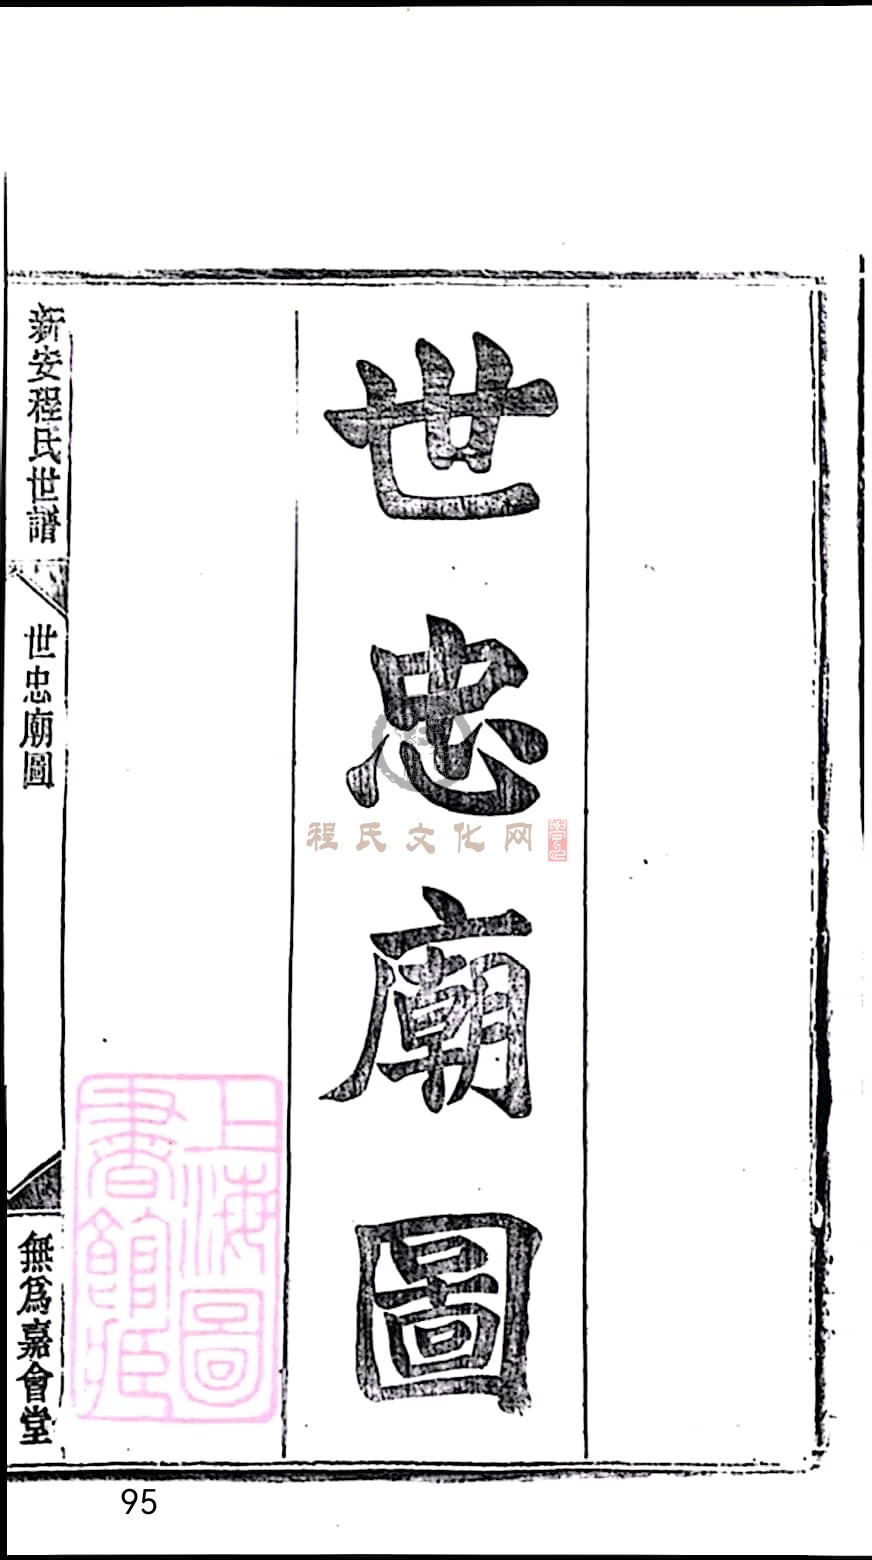 世忠廟圖
程氏文化网
新安程氏世譜
世忠廟圖
無為嘉會堂
上海圖
書館藏
95